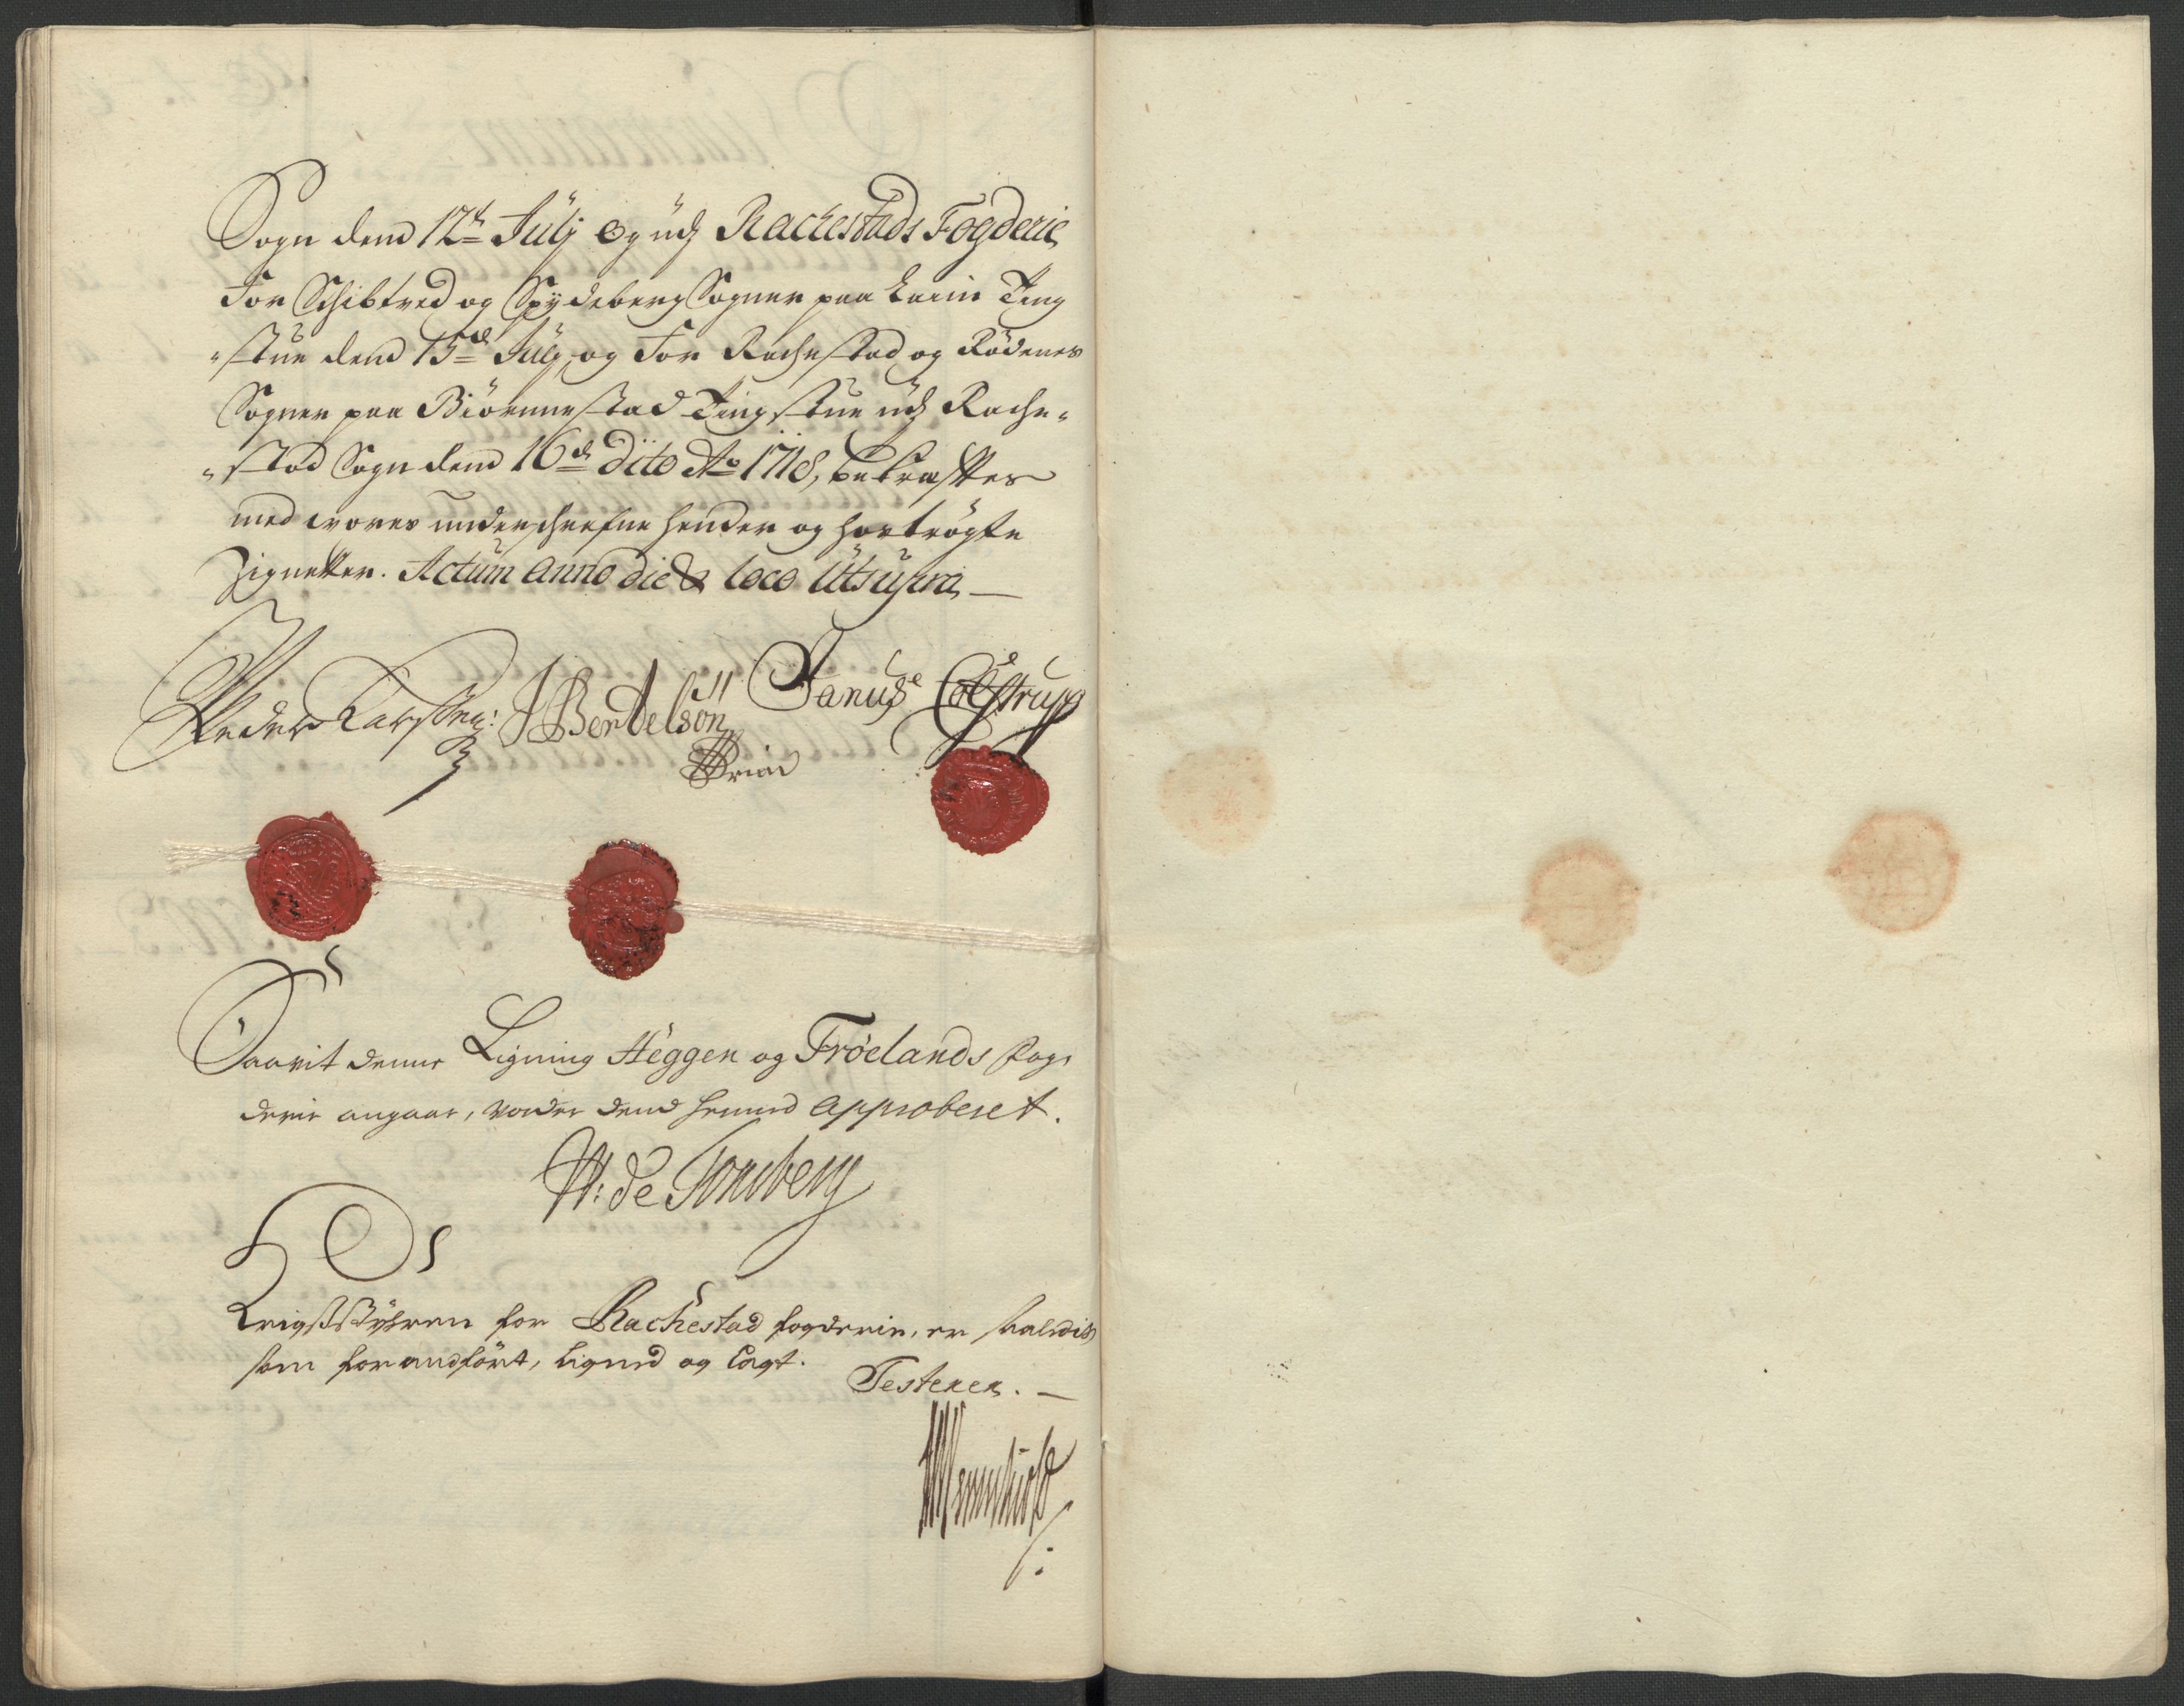 Sogn dend 12te Julij Og udj Rachestads Fogderie
For Schibtved og Spydeberg Sogner paa Ting
"stue dend 15de Julij, og For Rachestad og Rødenes
Sogner paa Biørnnestad Tingstue udj Rache-
"stad Sogn dend 16de Dito Ao 1718, bekræfftes
med vores underschrefne Hender og hoströgte
Zignetter. Actum anno die & loco Utsupra —
Peder Larssen: JBertelsön Januse Colstrupp
Saavit denne Ligning Heggen og Frøelands Fog-
derie angaar, vorder dend hermed approberet.
W: de Tonsberg
Krigs Styhren for Rachestad fogderie, er saaledis
som foranført, ligned og lagt.
Testerer. —